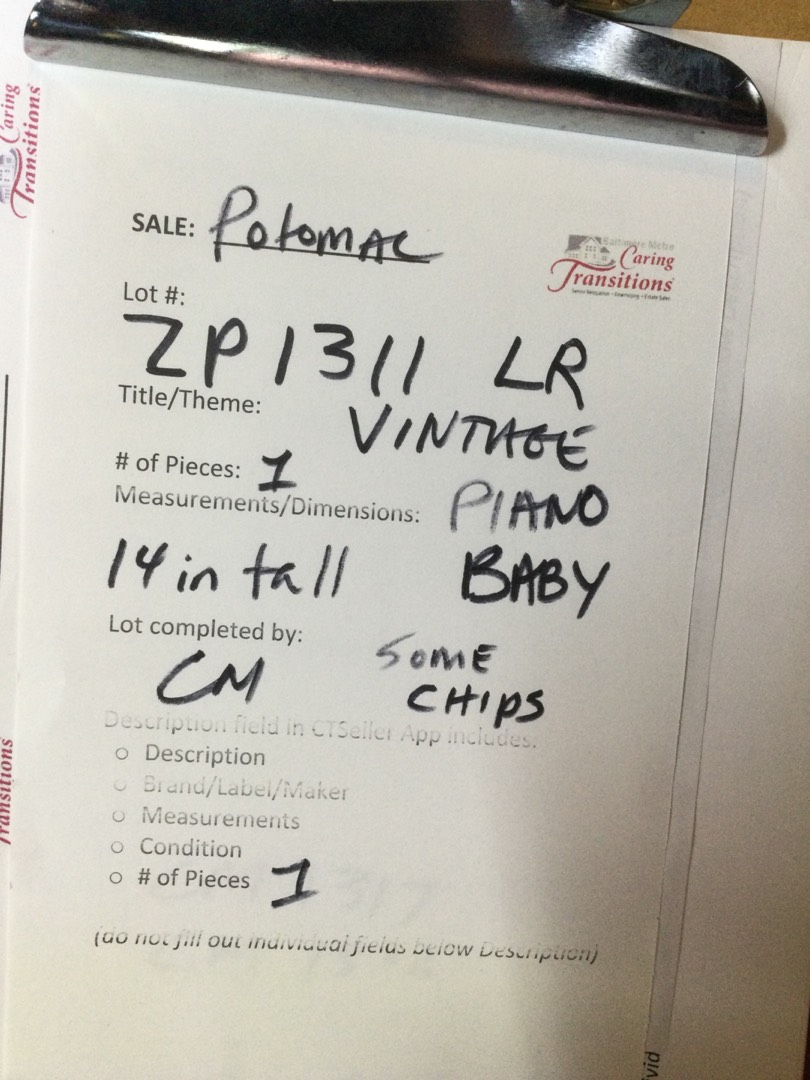 Caring
Transitions
SALE: Potomac
Baltimore Metro
Caring
Transitions
Lot #:
ZP1311 LR
Title/Theme:
VINTAGE
# of Pieces: 1
Measurements/Dimensions: PIANO
14 in tall BABY
Lot completed by:
SOME
CM CHIPS
Description field in CTSeller App includes:
o Description
o Brand/Label/Maker
o Measurements
o Condition
o # of Pieces 1
(do not fill out individual fields below Description)
Transitions